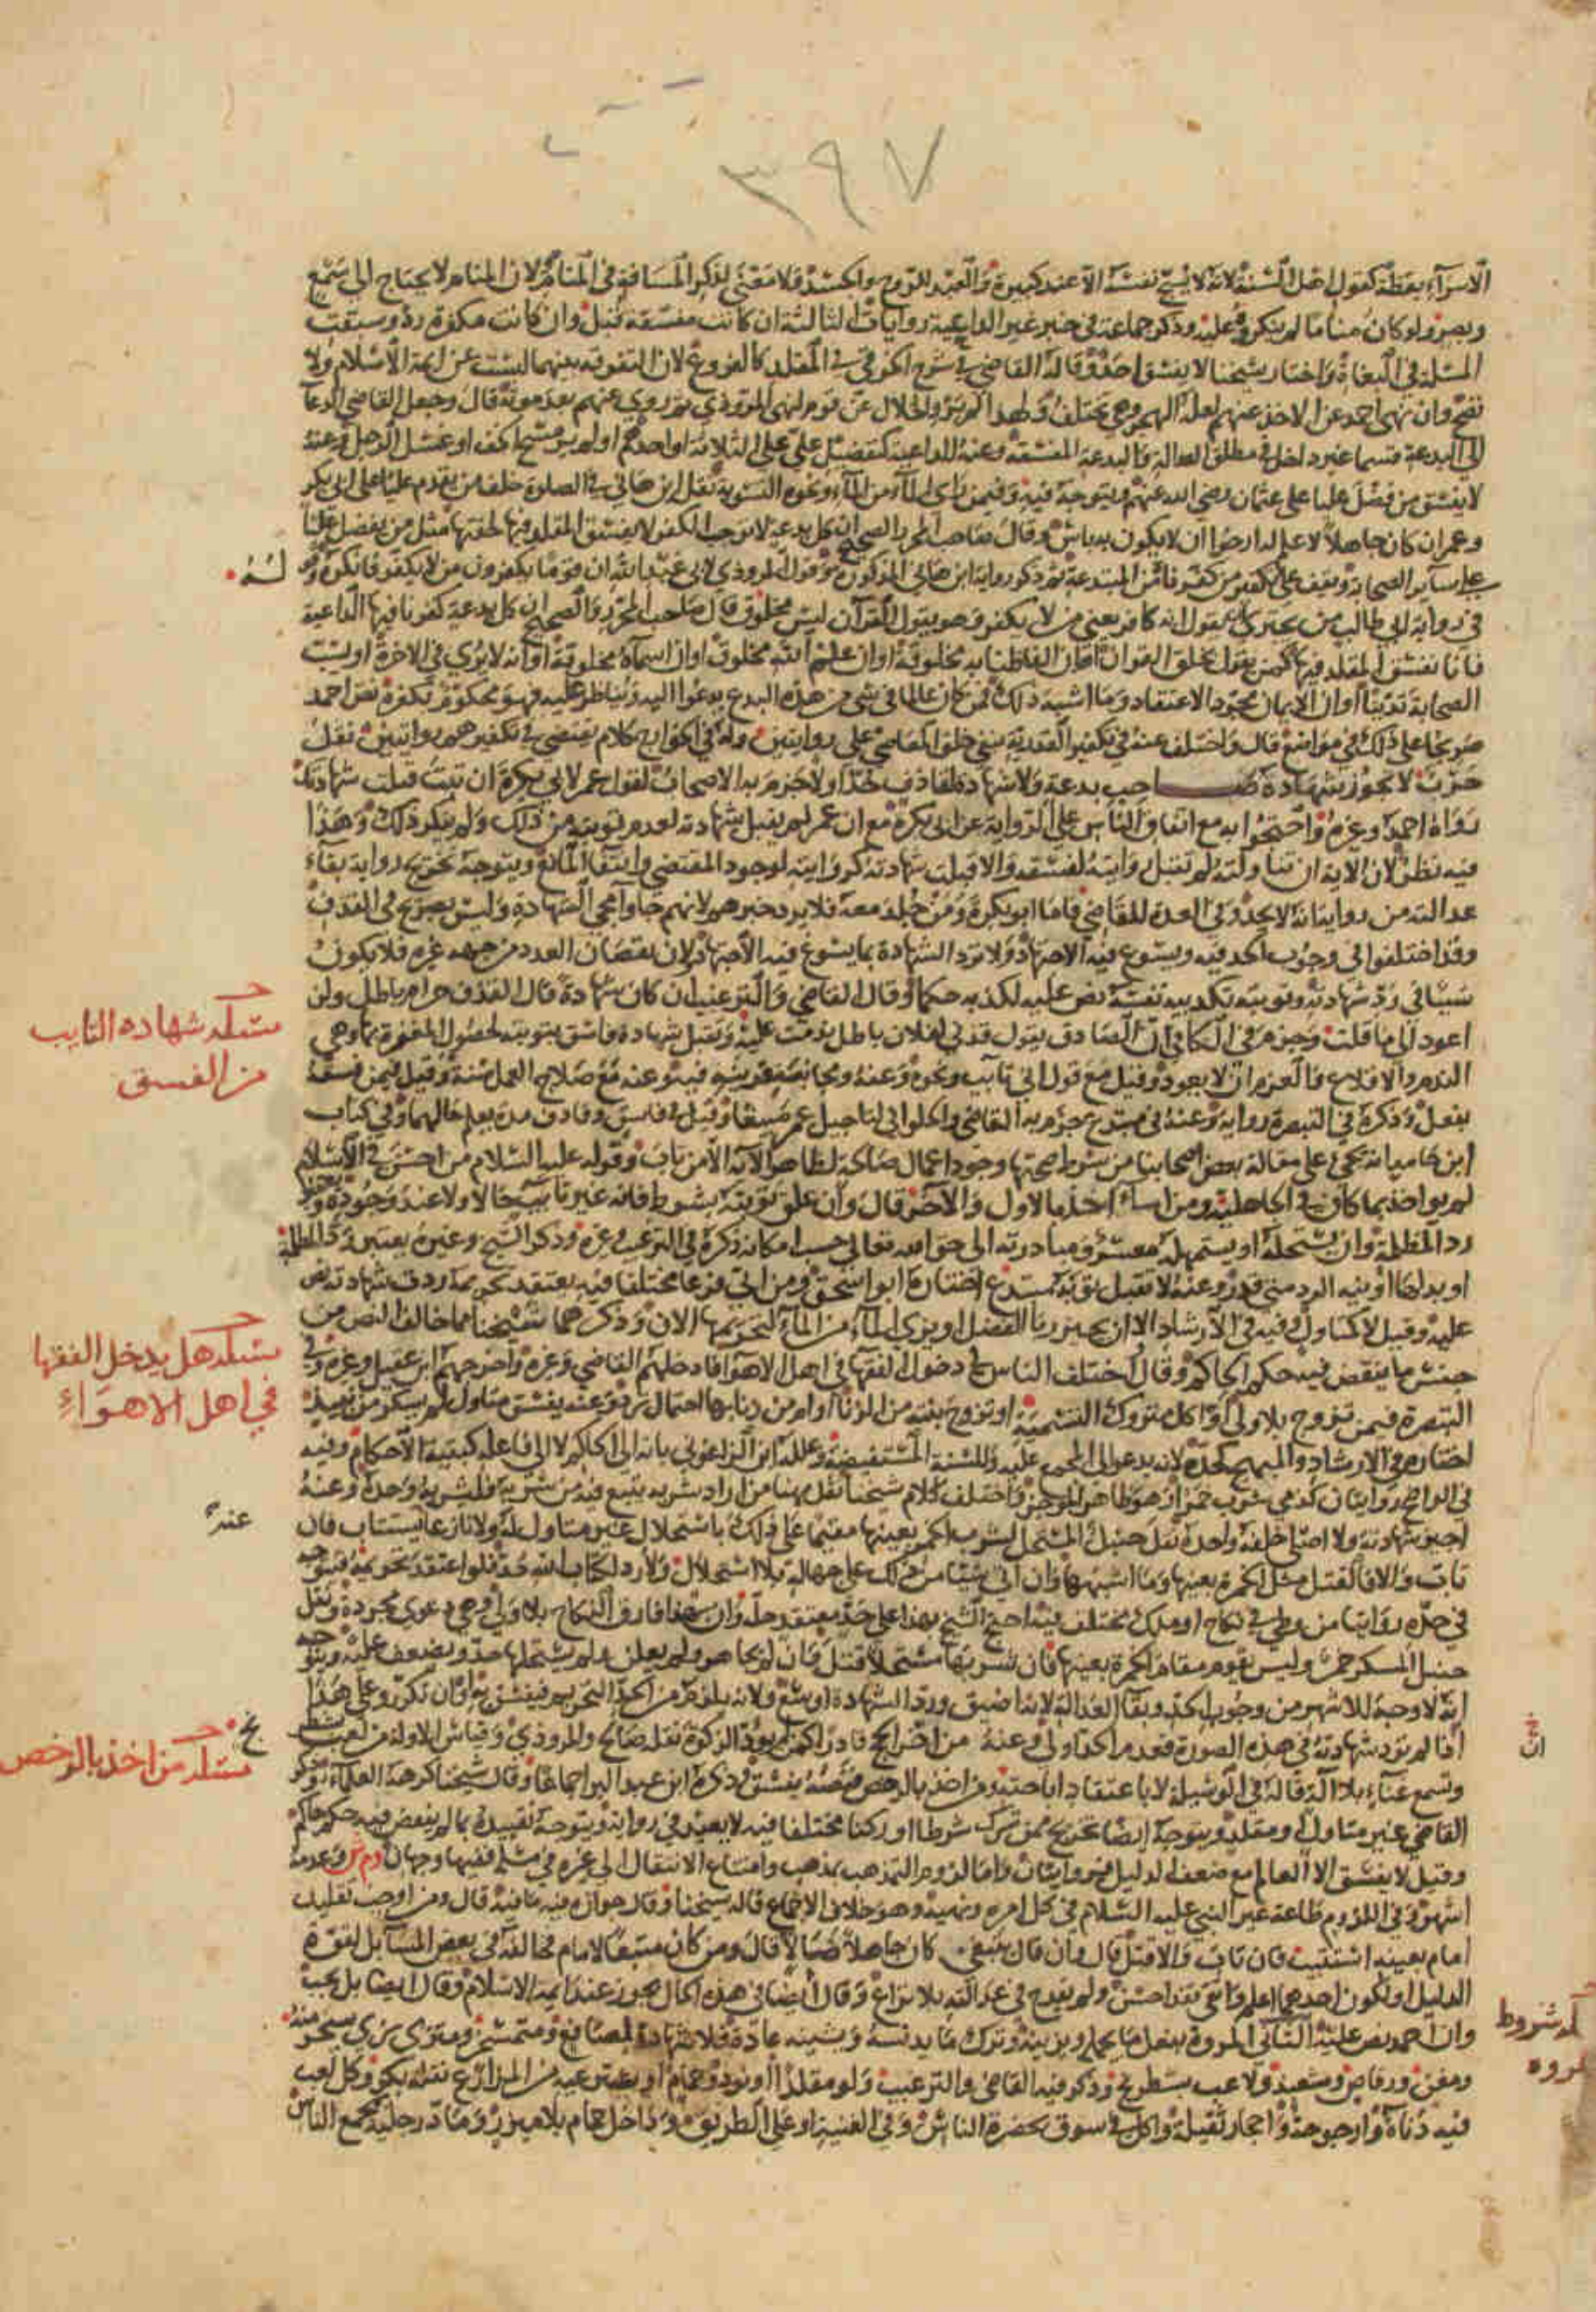 ٣٩٧
الاسرآء يقظة كقول اهل السنة لانه لا يسبح نفسه الا عند كبيرة والعبد الروح والجسد ولا معنى لذكر المسافة في المنام لان المنام لا يحتاج الى سمع
وبصر ولو كان مناما لم ينكروه عليه وذكر جماعة في خبر غير الداعية روايات الثالثة ان كانت مفسقة قبل وان كانت مكفرة رد وسبقت
المسئلة في البغاة واختار شيخنا لا يفسق احد وقاله القاضي في شرح الخرقي في المقلد كالفروع لان التفرقة بينهما ليست عن ايمة الاسلام ولا
تصح وان نهى احمد عن الاخذ عنهم لعله الهجر وهي تختلف ولهذا لم يرو الخلال عن قوم لنهى المروذي ثم روى عنهم بعد موته قال وجعل القاضي الدعآ
الى البدعة قسما غير داخل في مطلق العدالة والبدعة المفسقة وعنه الداعية كتفضيل علي على الثلاثة او احدهم او لم ير مسح الخف او غسل الرجل وعنه
لا يفسق من فضل عليا على عثمان رضي الله عنهم ويتوجه فيه وفيمن راى المآء من المآء ونحوه التسوية نقل ابن هاني في الصلوة خلف من يقدم عليا على ابي بكر
وعمر ان كان جاهلا لا علم له ارجوا ان لا يكون به باس وقال صاحب المحرر الصحيح ان كل بدعة لا توجب الكفر لا يفسق المقلد فيها لخفتها مثل من يفضل عليا
على سآير الصحابة ويقف على تكفير من كفرناه من المبتدعة ثم ذكر رواية ابن هاني المذكورة وقول المروذي لابي عبد الله ان قوما يكفرون من لا يكفر فانكره وقوله
في رواية ابي طالب من يجتري يقول انه كافر يعني من لا يكفر وهو يقول القرآن ليس مخلوق قال صاحب المحرر والصحيح ان كل بدعة كفرنا فيها الداعية
فانا نفسق المقلد فيها كمن يقول بخلق القران او ان الفاظنا به مخلوقة او ان علم الله مخلوق او ان اسمآه مخلوقة او انه لا يرى في الاخرة او يسب
الصحابة تدينا او ان الايمان مجرد الاعتقاد وما اشبه ذلك فمن كان عالما في شي من هذه البدع يدعوا اليه ويناظر عليه فهو محكوم بكفره نص احمد
صريحا على ذلك في مواضع قال واختلف عنه في تكفير القدرية بنفي خلق المعاصي على روايتين وله في الخوارج كلام يقتضي في تكفيرهم روايتين نقل
حرب لا تجوز شهادة صاحب بدعة ولا شهادة قاذف حد او لا جزم به الاصحاب لقول عمر لابي بكرة ان تبت قبلت شهادتك
رواه احمد وغيره واحتجوا به مع اتفاق الناس على الرواية عن ابي بكرة مع ان عمر لم يقبل شهادته لعدم توبته من ذلك ولم ينكر ذلك وهذا
فيه نظر لان الاية ان تناولته لم تقبل روايته لفسقه والا قبلت شهادته كروايته لوجود المقتضي وانتفآ المانع ويتوجه تخريج رواية بقآء
عدالته من رواية انه لا يحد وفي العدة للقاضي فاما ابو بكرة ومن جلد معه فلا يرد خبرهم لانهم جاوا مجي الشهادة وليس بصريح في القذف
وقد اختلفوا في وجوب الحد فيه ويسوغ فيه الاجتهاد ولا ترد الشهادة بما يسوغ فيه الاجتهاد ولان نقصان العدد من جهة غيره فلا يكون
سببا في رد شهادته وتوبته تكذيبه نفسه نص عليه لكذبه حكما وقال القاضي والترغيب ان كان شهادة قال القذف حرام باطل ولن
اعود الى ما قلت وجزم في الكافي ان الصادق يقول قذفي لفلان باطل ندمت عليه وتقبل شهادة فاسق بتوبته لحصول المغفرة بها وهي
الندم والاقلاع والعزم ان لا يعود وقيل مع قول اني تآيب ونحوه وعنه ومجانبة قرينه فيه وعنه مع صلاح العمل سنة وقيل فيمن فسقه
بفعل وذكره في التبصرة رواية وعنه في مبتدع جزم به القاضي والحلواني لتاجيل عمر صبيغا وقيل في فاسق وقاذف مدة يعلم حالهما وفي كتاب
ابن حامد انه يجي على مقالة بعض اصحابنا من شروط صحتها وجود اعمال صالحة لظاهر الآية الا من تاب وقوله عليه السلام من احسن في الاسلام
لم يواخذ بما كان في الجاهلية ومن اسآء اخذ بالاول والاخر قال وان علق توبته بشرط فانه غير تآيب حالا ولا عند وجوده ويعتبر
رد المظلمة وان يستحله او يستمهله معسر ومبادرته الى حق الله تعالى حسب امكانه ذكره في الترغيب وغيره وذكر الشيخ وغيره يعتبر رد المظلمة
او بدلها او نية الرد متى قدر وعنه لا تقبل توبة مبتدع اختاره ابو اسحق ومن اتى فرعا مختلفا فيه يعتقد تحريمه ردت شهادته نص
عليه وقيل لا كمتاول وفيه في الارشاد الا ان يجيز ربا الفضل او يرى المآء من المآء لتحريمها الان وذكرهما شيخنا مما خالف النص من
جنس ما ينقض فيه حكم الحاكم وقال اختلف الناس في دخول الفقهآ في اهل الاهوآ فادخلهم القاضي وغيره واخرجهم ابن عقيل وغيره وفي
التبصرة فيمن تزوج بلا ولي او اكل متروك التسمية او تزوج بنته من الزنا او ام من زنا بها احتمال ترد وعنه يفسق متاول لم يسكر من نبيذ
اختاره في الارشاد والمبهج كحده لانه يدعو الى المجمع عليه وللسنة المستفيضة وعلله ابن الزاغوني بانه الى الحاكم لا الى فاعله كبقية الاحكام وفيه
في الواضح روايتان كذمي شرب خمرا وهو ظاهر الموجز واختلف كلام شيخنا نقل مهنا من اراد شربه يتبع فيه من شربه فليشربه وحده وعنه
اجيز شهادته ولا اصلي خلفه واحده نقل حنبل المستحل لشرب الخمر بعينها مقيما على ذلك باستحلال غير متاول له ولا نازعا يستتاب فان
تاب والا فالقتل مثل الخمرة بعينها وما اشبهها وان اتى شيئا من ذلك على جهالة بلا استحلال ولا رد لكتاب الله حد فلو اعتقد تحريمه فيتوجه
في حده روايتا من وطي في نكاح او ملك مختلف فيه احتج الشيخ بهذا على حد معتقد حله وان بهذا فارق النكاح بلا ولي وهي دعوى مجردة ونقل
حنبل المسكر خمر وليس يقوم مقام الخمرة بعينها فان شربها مستحلا قتل فان لم يجاهر ولم يعلن ولم يستحلها حد ويضعف عليه ويتوجه
انه لا وجه للاشهر من وجوب الحد وبقآ العدالة لانه اضيق ورد الشهادة اوسع ولانه يلزم من الحد التحريم فيفسق به او ان تكرر وعلى هذا
اذا لم ترد شهادته في هذه الصورة فعدم الحد اولى وعنه من اخر الحج قادرا كمن لم يود الزكوة نقله صالح والمروذي وقياس الاولة من لعب بشطرنج
وتسمع غنآء بلا آلة قاله في الوسيلة لا باعتقاد اباحته ومن اخذ بالرخص فنصه يفسق وذكره ابن عبد البر اجماعا وقال شيخنا كرهه العلمآء وذكر
القاضي غير متاول او مقلد ويتوجه ايضا تخريج ممن ترك شرطا او ركنا مختلفا فيه لا يعيد في رواية ويتوجه تقييده بما لم ينقض فيه حكم حاكم
وقيل لا يفسق الا العالم مع ضعف الدليل فروايتان واما لزوم التمذهب بمذهب وامتناع الانتقال الى غيره في مسئلة ففيها وجهان وم ش وعدمه
اشهر وفي اللزوم طاعة غير النبي عليه السلام في كل امره ونهيه وهو خلاف الاجماع قاله شيخنا وقال جوازه فيه ما فيه قال ومن اوجب تقليد
امام بعينه استتيب فان تاب والا قتل قال وان قال ينبغي كان جاهلا ضالا قال ومن كان متبعا لامام فخالفه في بعض المسآيل لقوة
الدليل او لكون احدهما اعلم واتقى فقد احسن ولم يقدح في عدالته بلا نزاع وقال ايضا في هذه الحال يجوز عند ايمة الاسلام وقال ايضا بل يجب
وان احمد نص عليه الثاني المروة بفعل ما يجمله ويزينه وترك ما يدنسه ويشينه عادة فلا شهادة لمصافع ومتمسخر ومتزي بزي يسخر منه
ومغن ورقاص ومشعبذ ولاعب بشطرنج وذكر فيه القاضي والترغيب ولو مقلدا او نرد وحمام او يسترعيه من المزارع نقله بكر وكل لعب
فيه دناة وارجوحة واحجار ثقيلة واكل في سوق بحضرة الناس وفي الغنية او على الطريق وداخل حمام بلا ميزر وماد رجليه بمجمع الناس
مسئلة شهاده التايب
من الفسق
مسئلة هل يدخل الفقها
في اهل الاهوآء
عنده
مسئلة من اخذ بالرخص
ان
شروط